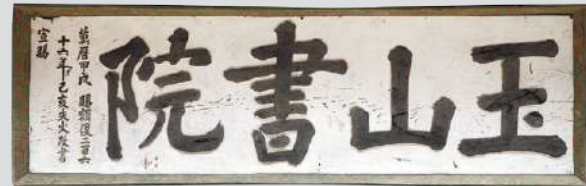 玉山書院
萬曆甲戌 賜額後二百六
十六年己亥失火改書
宣賜